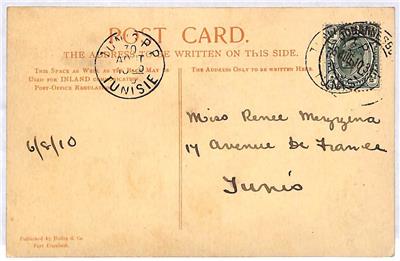 POST CARD.
THE ADDRESS TO BE WRITTEN ON THIS SIDE.
THIS SPACE AS WELL AS THE BACK MAY BE
USED FOR INLAND COMMUNICATION
POST-OFFICE REGULATION
THE ADDRESS ONLY TO BE WRITTEN HERE.
30
AOUT
TUNISIE
JOHANNESB
6/8/10
Miss Renee Meyzena
17 Avenue De France
Tunis
Published by Hallis & Co
Port Elizabeth.